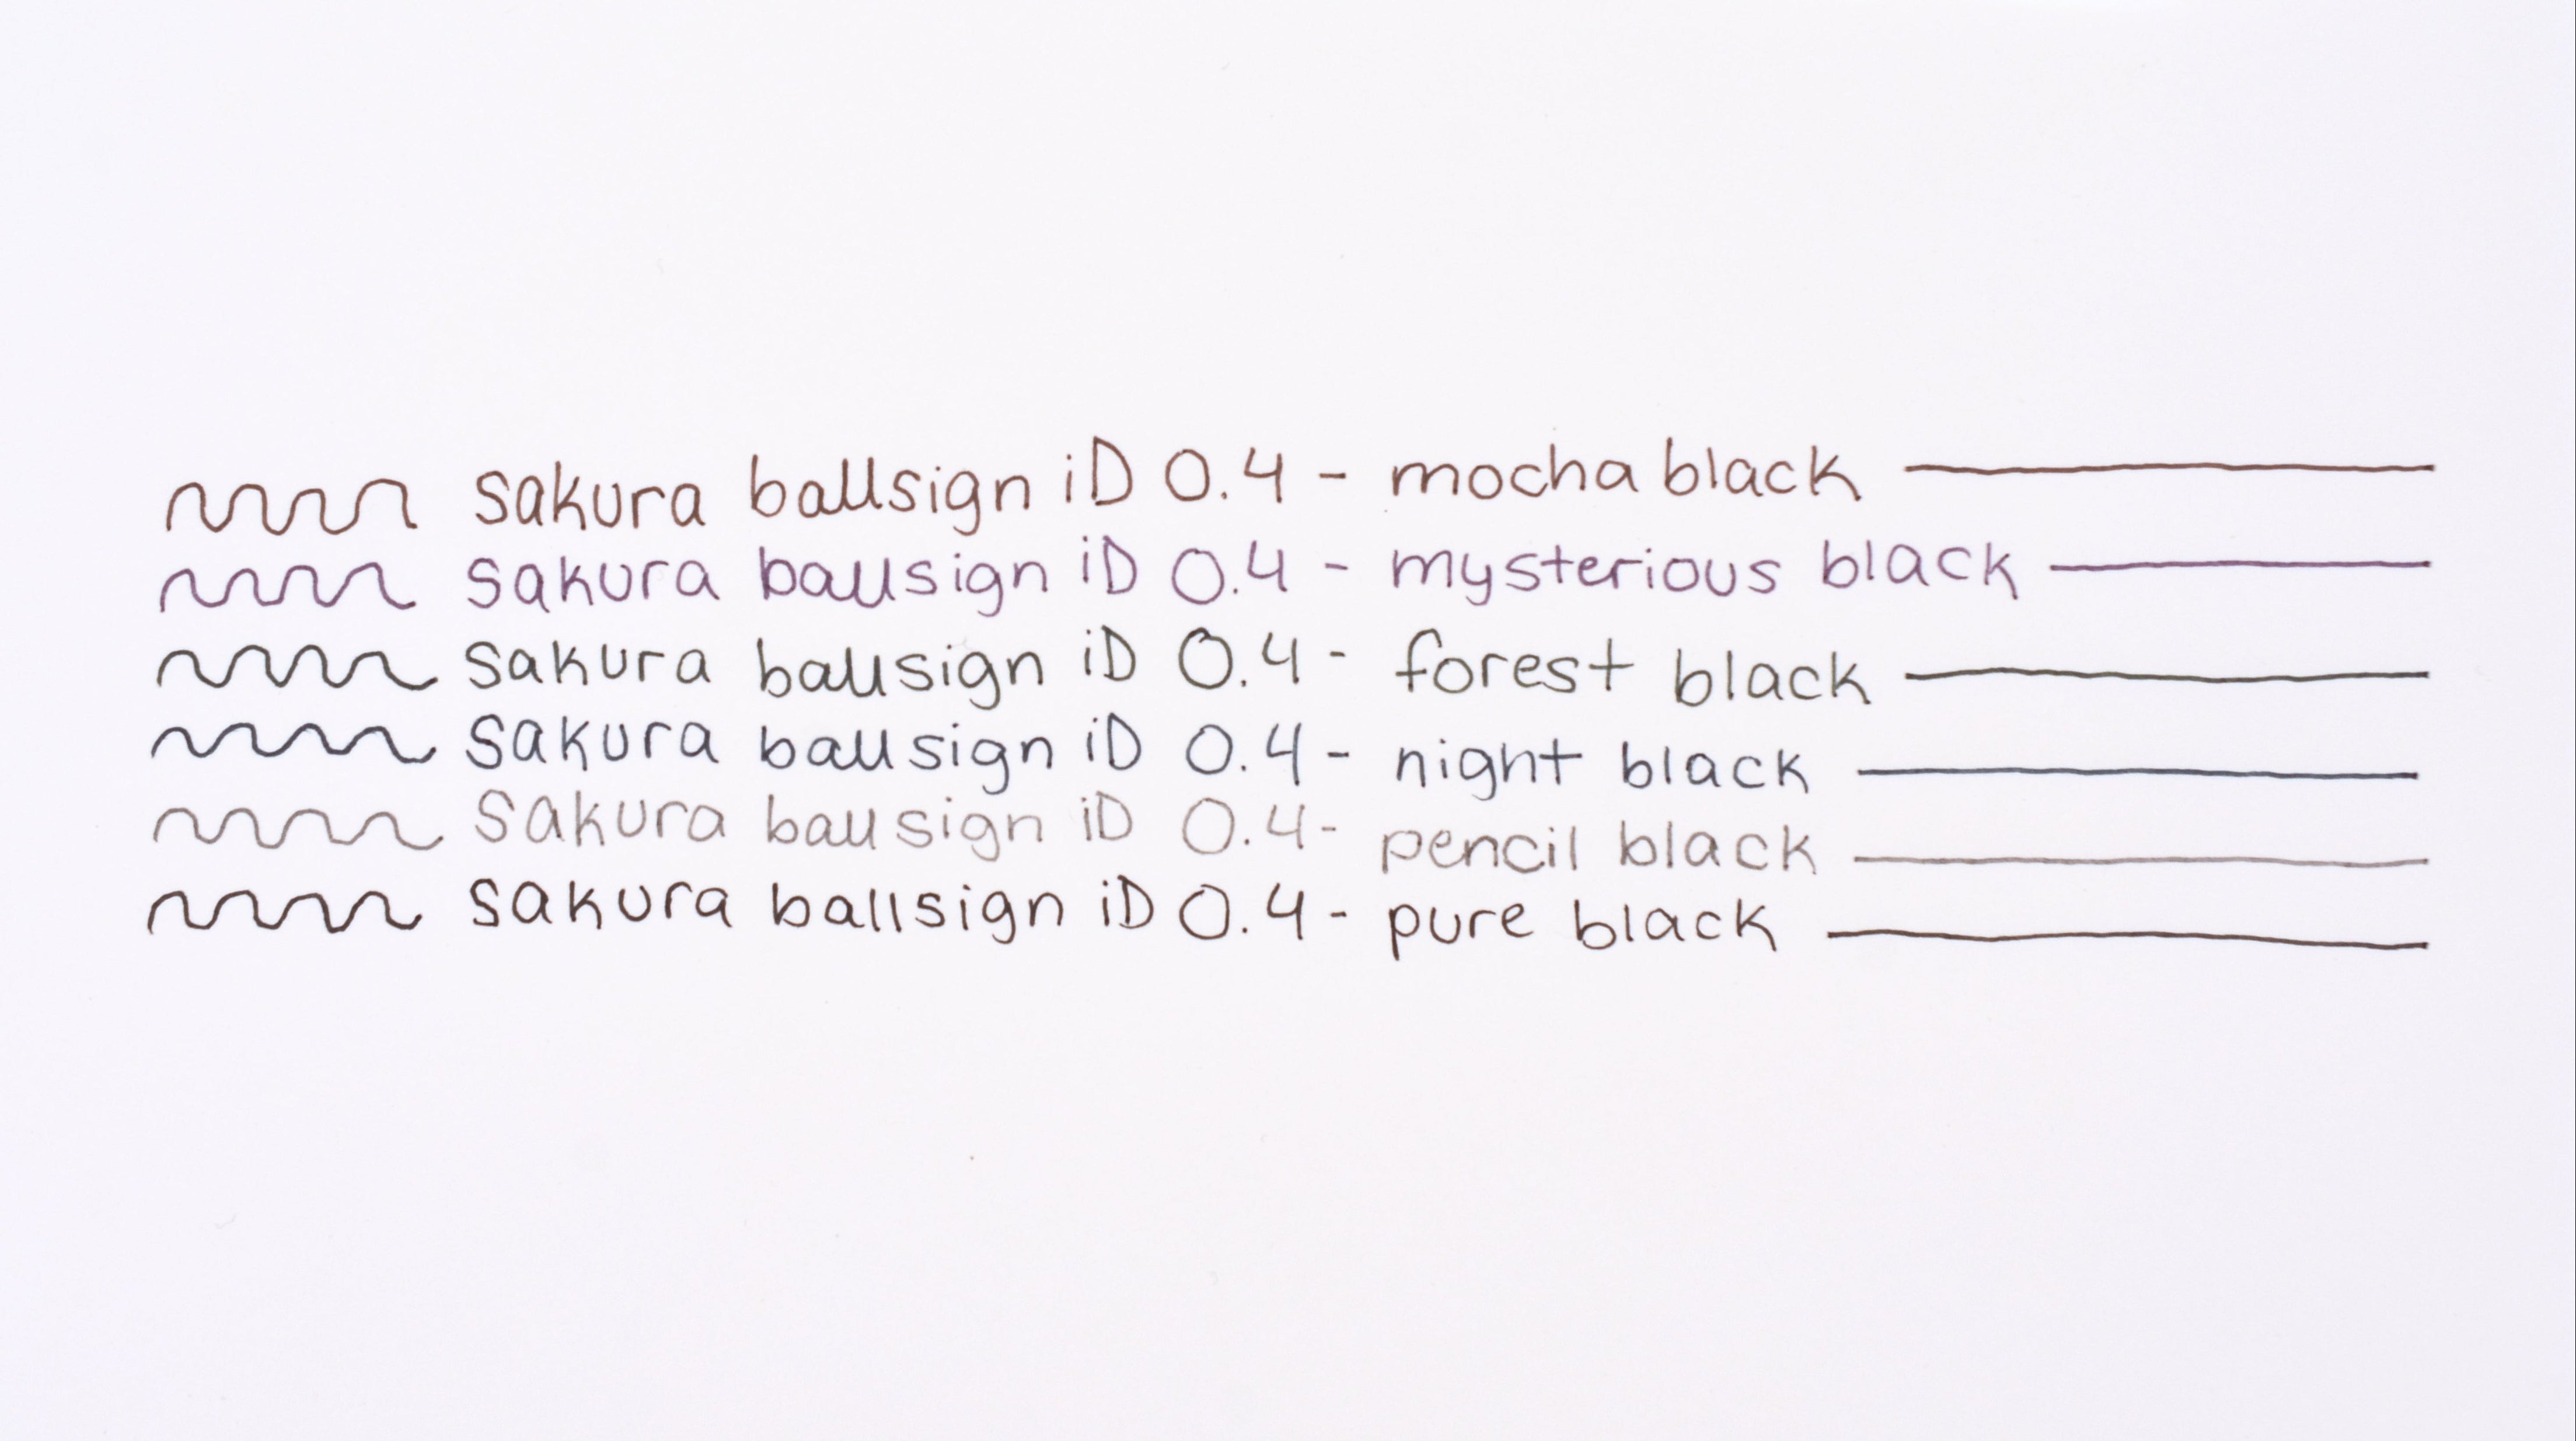 sakura ballsign iD 0.4 - mocha black
sakura ballsign iD 0.4 - mysterious black
sakura ballsign iD 0.4 - forest black
sakura ballsign iD 0.4 - night black
sakura ballsign iD 0.4 - pencil black
sakura ballsign iD 0.4 - pure black